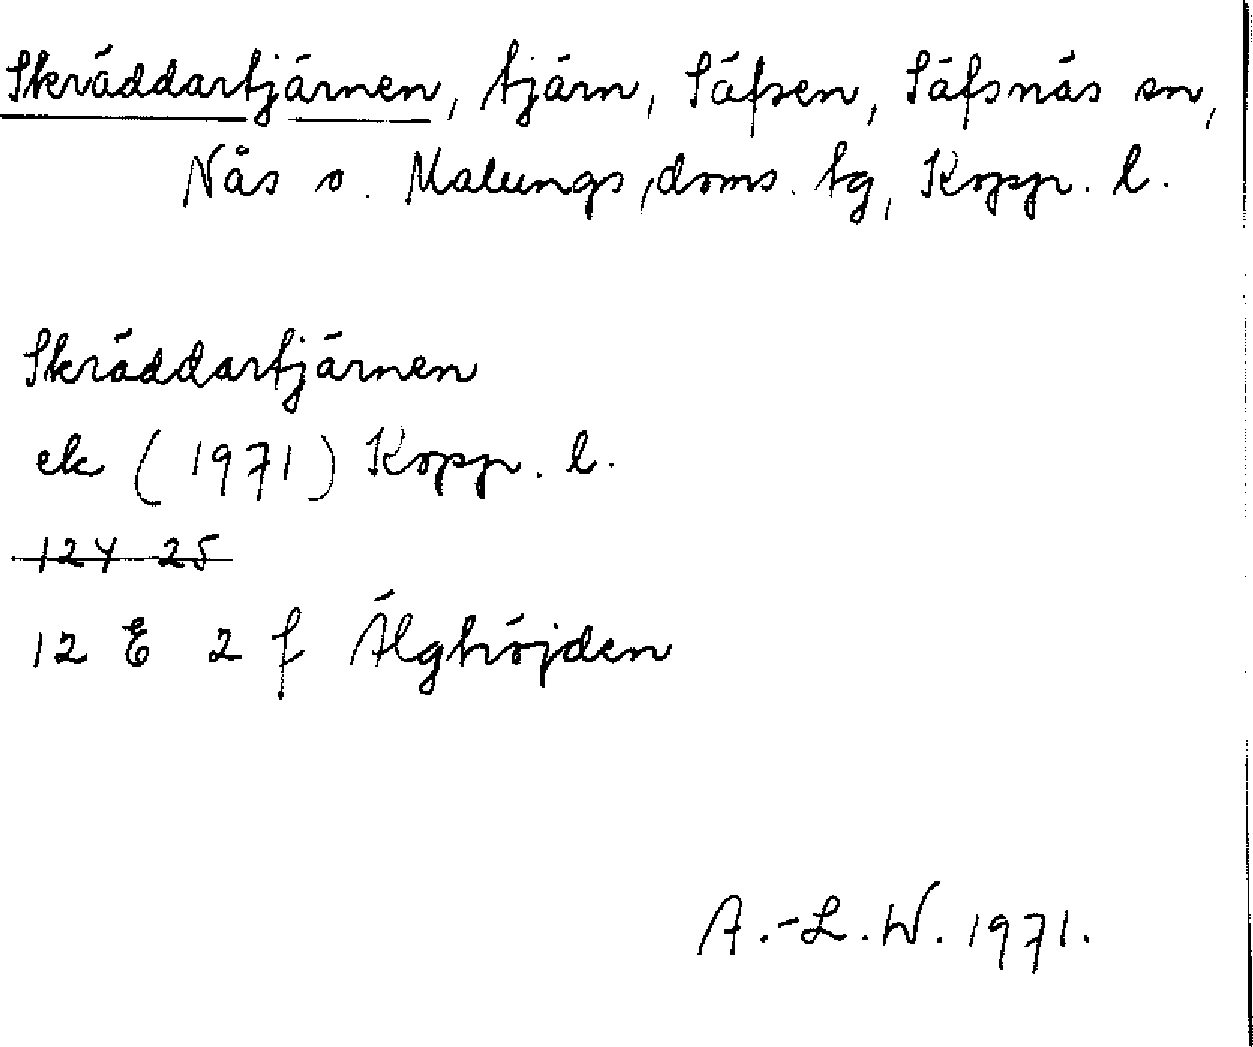 Skräddartjärnen, tjärn, Säfsen, Säfsnäs sn,
Nås o. Malungs, doms. tg, Kopp. l.
Skräddartjärnen
ek (1971) Kopp. l.
124 25
12 E 2 f Älghöjden
A.-L.W. 1971.